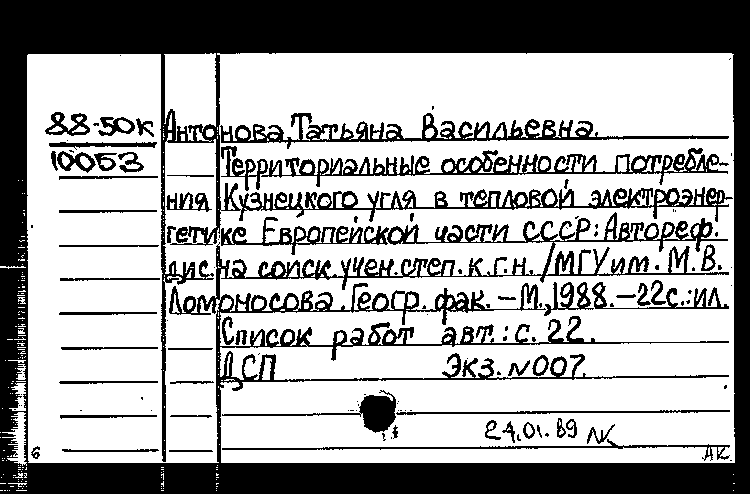 88-50к Антонова, Татьяна Васильевна.
10053 Территориальные особенности потребле-
ния Кузнецкого угля в тепловой электроэнер-
гетике Европейской части СССР: Автореф.
дис. на соиск. учен. степ. к.г.н. / МГУ им. М.В.
Ломоносова. Геогр. фак. – М., 1988. – 22с.: ил.
Список работ авт.: с. 22.
ДСП Экз. N007.
24.01.89
6 АК